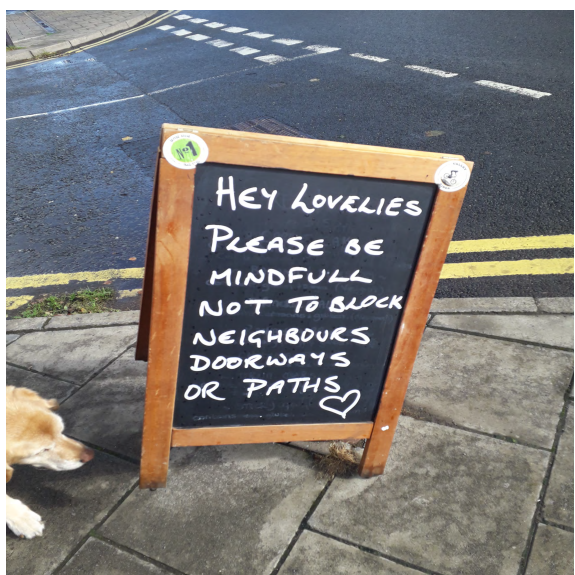 No1
HEY LOVELIES
PLEASE BE
MINDFULL
NOT TO BLOCK
NEIGHBOURS
DOORWAYS
OR PATHS